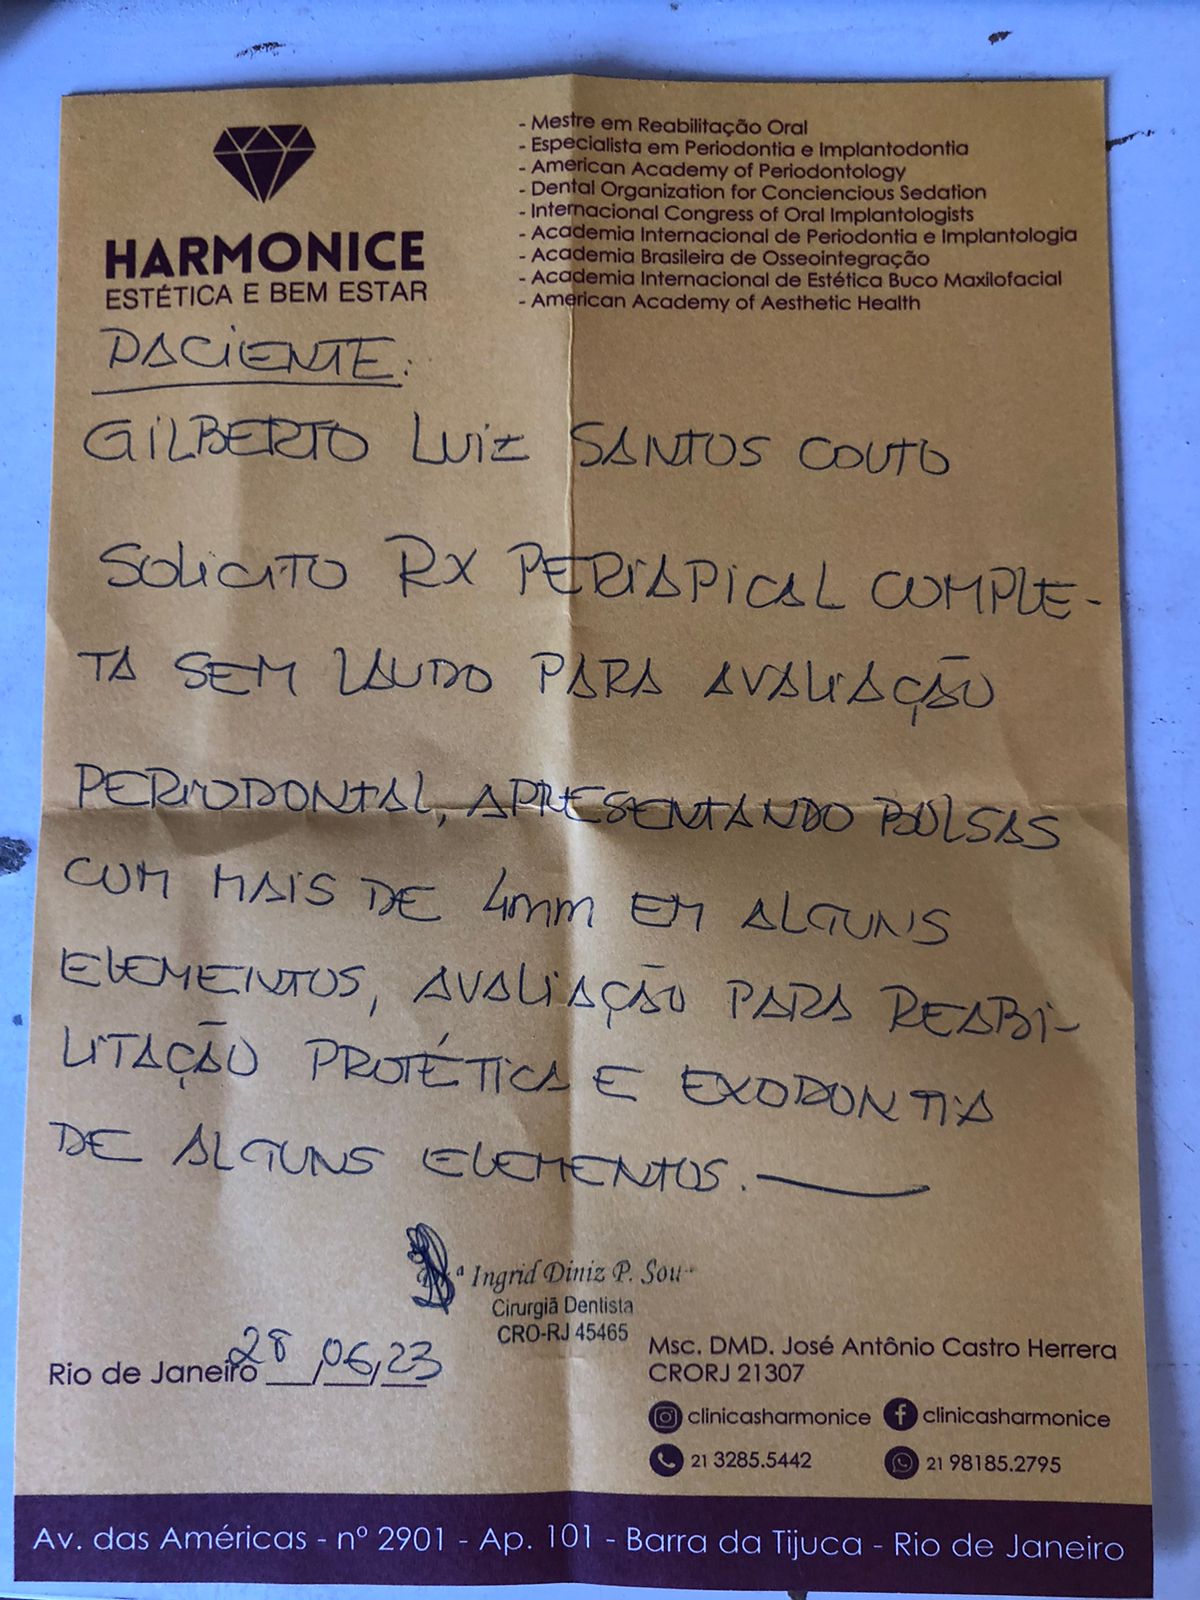 HARMONICE
ESTÉTICA E BEM ESTAR
- Mestre em Reabilitação Oral
- Especialista em Periodontia e Implantodontia
- American Academy of Periodontology
- Dental Organization for Conciencious Sedation
- Internacional Congress of Oral Implantologists
- Academia Internacional de Periodontia e Implantologia
- Academia Brasileira de Osseointegração
- Academia Internacional de Estética Buco Maxilofacial
- American Academy of Aesthetic Health
PACIENTE:
GILBERTO LUIZ SANTOS COUTO
SOLICITO RX PERIAPICAL COMPLE-
TA SEM LAUDO PARA AVALIAÇÃO
PERIODONTAL, APRESENTANDO BOLSAS
COM MAIS DE 4mm EM ALGUNS
ELEMENTOS, AVALIAÇÃO PARA REABI-
LITAÇÃO PROTÉTICA E EXODONTIA
DE ALGUNS ELEMENTOS.
ª Ingrid Diniz P. Sou
Cirurgiã Dentista
CRO-RJ 45465
Rio de Janeiro 28/06/23
Msc. DMD. José Antônio Castro Herrera
CRORJ 21307
clinicasharmonice clinicasharmonice
21 3285.5442 21 98185.2795
Av. das Américas - nº 2901 - Ap. 101 - Barra da Tijuca - Rio de Janeiro